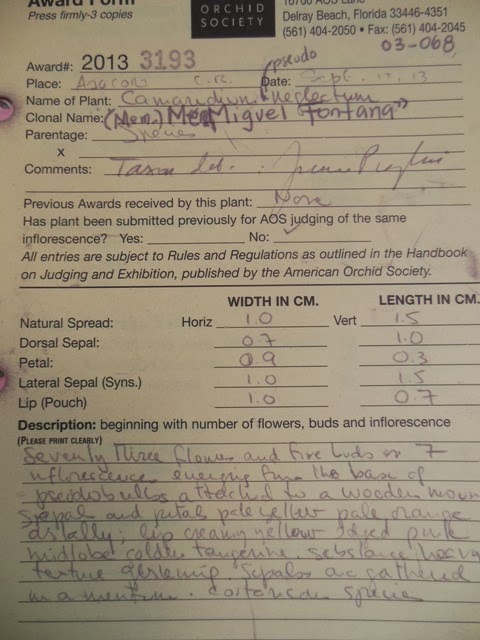 Award Form
Press firmly-3 copies
ORCHID
SOCIETY
16700 AOS Lane
Delray Beach, Florida 33446-4351
(561) 404-2050 • Fax: (561) 404-2045
03-068
Award#: 2013 3193
pseudo
Place: C.R. Date: Sept. 12, 13
Name of Plant: Camaridium neglectum
Clonal Name: (Mem.) Miguel Fontana"
Parentage: Species
x
Comments: Taxon
Previous Awards received by this plant: None
Has plant been submitted previously for AOS judging of the same
inflorescence? Yes: No:
All entries are subject to Rules and Regulations as outlined in the Handbook
on Judging and Exhibition, published by the American Orchid Society.
WIDTH IN CM. LENGTH IN CM.
Natural Spread: Horiz 1.0 Vert 1.5
Dorsal Sepal: 0.7 1.0
Petal: 0.9 0.3
Lateral Sepal (Syns.) 1.0 1.5
Lip (Pouch) 1.0 0.7
Description: beginning with number of flowers, buds and inflorescence
(PLEASE PRINT CLEARLY)
Seventy three flowers and five buds on 7
inflorescence emerging from the base of
pseudobulbs attached to a wooden moun
sepals and petals pale yellow pale orange
distally; lip creamy yellow edged pink
midlobe golden tangerine. substance heavy
texture glistening. Sepals are gathered
in a mentum. costarican species